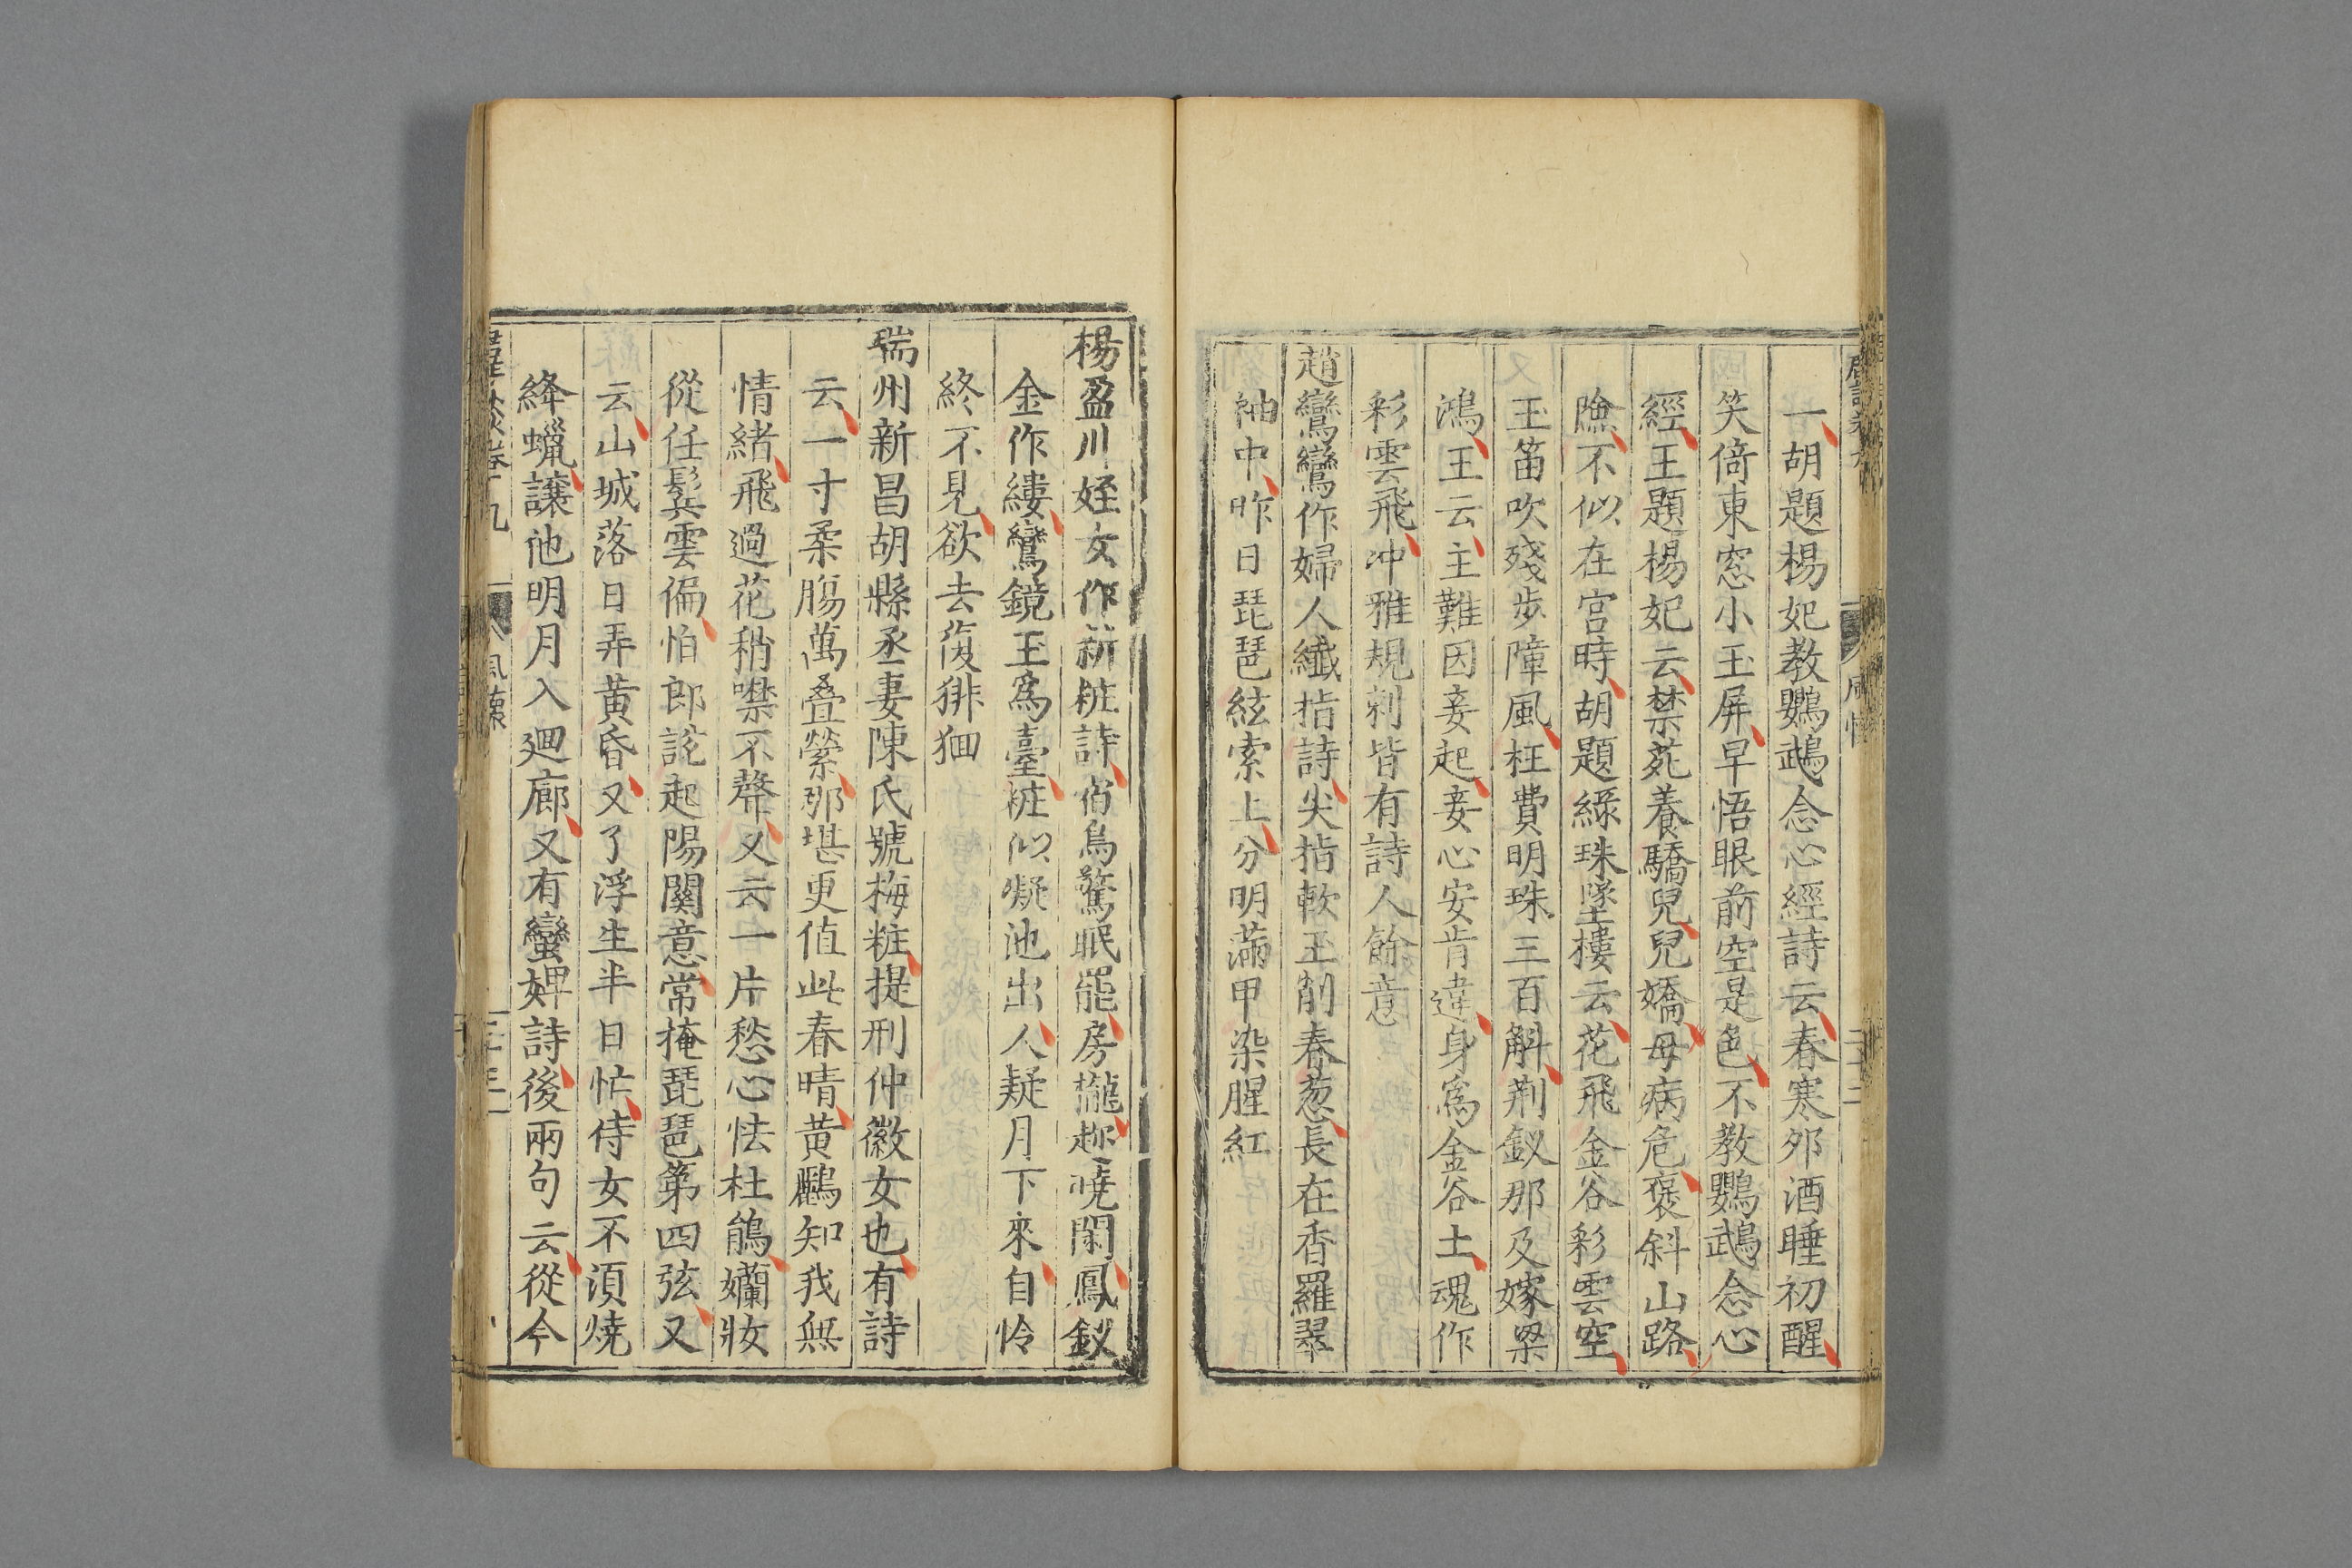 一胡題楊妃教鸚鵡念心經詩云春寒夘酒睡初醒
笑倚東窓小玉屏早悟眼前空是色不教鸚鵡念心
經王題楊妃云禁苑養驕兒兒嬌母病危褒斜山路
險不似在宫時胡題綠珠墜樓云花飛金谷彩雲空
玉笛吹殘步障風枉費明珠三百斛荆釵那及嫁梁
鴻王云主難因妾起妾心安肯違身爲金谷土魂作
彩雲飛冲雅規刺皆有詩人餘意
趙鸞鸞作婦人纖指詩尖指軟玉削春葱長在香羅翠
袖中昨日琵琶絃索上分明滿甲染腥紅
楊盈川姪女作新粧詩宿鳥驚眠罷房櫳趂曉閑鳳釵
金作縷鸞鏡玉爲臺粧似凝池出人疑月下來自怜
終不見欲去復徘徊
瑞州新昌胡縣丞妻陳氏號梅粧提刑仲徽女也有詩
云一寸柔腸萬叠縈那堪更值此春晴黄鸝知我無
情緒飛過花稍噤不聲又云一片愁心怯杜鵑孏妝
從任鬂雲偏怕郎說起陽關意常掩琵琶第四弦又
云山城落日弄黄昏又了浮生半日忙侍女不湏燒
絳蠟讓他明月入廻廊又有蠻婢詩後兩句云從今